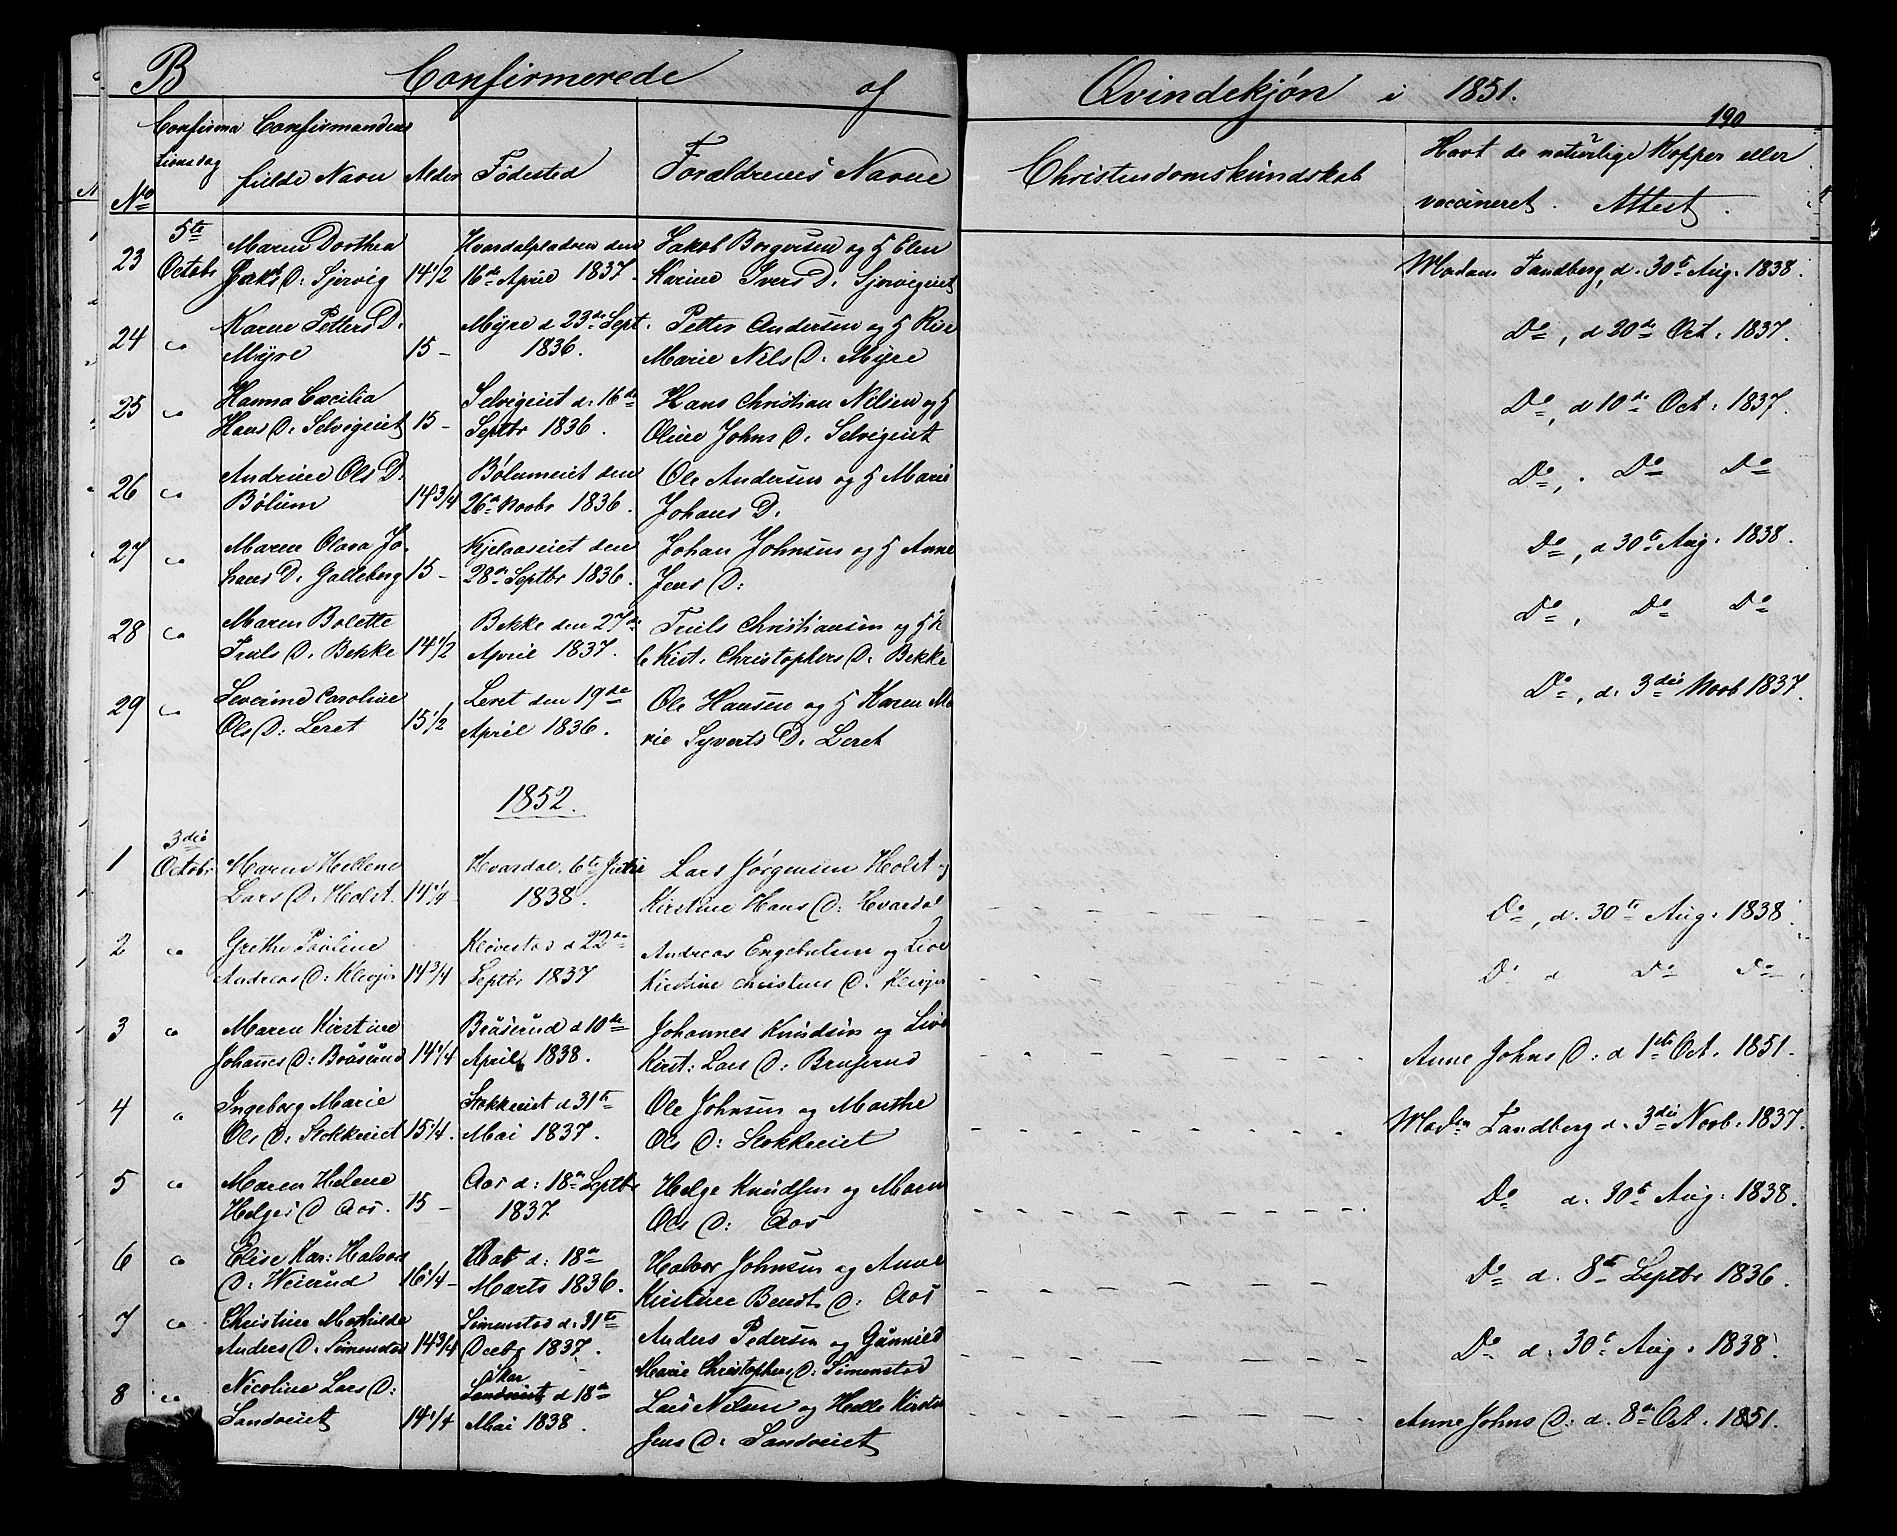 B Confirmerede af Qvindekjøn i 1851.
190
No Confirmationsdag Confirmandens fulde Navn Alder Fødested Forældrenes Navne Christendomskundskab Havt de naturlige Kopper eller vaccineret. Attest.
23 5te Octobr Maren Dorthea Hvardalpladsen den Jakob Borgersen og H Elen
Jakobs D: Sjervig 14 1/2 16de April 1837. Karine Ivers D. Sjervigeiet Madam Tandberg, d. 30te Aug. 1838.
24 " Karen Petters D. Myre d 23de Sept. Petter Andersen og H
Myre 15 - 1836. Marie Nils D: Myre Do, d 20de Oct: 1837.
25 " Hanna Cæcilia Selvigeiet d: 16de Hans Christian Nilsen og H
Hans D: Selvigeiet 15 - Septbr 1836. Oline Johns D. Selvigeiet Do, d 10de Oct: 1837.
26 " Andrine Ols D. Bølumeiet den Ole Andersen og H Marie
Bølum 14 3/4 26de Novbr 1836. Johans D. Do, Do Do
27 " Maren Olava Jo- Kjelaaseiet den Johan Johnsen og H Anne
hans D. Galleberg 15 - 28de Septbr 1836. Jens D: Do, d 30te Aug: 1838.
28 " Maren Bolette Bekke den 27de Truls Christiansen og H
Truls D. Bekke 14 1/2 April 1837. Kirst. Christophers D. Bekke Do, Do Do
29 " Severine Caroline Leret den 19de Ole Hansen og H Karen Ma
Ols D: Leret 15 1/2 April 1836. rie Syverts D. Leret Do, d: 3die Novb 1837.
1852.
1 3die Octobr Maren Hellene Hvardal. 6te Lars Jørgensen Holst og
Lars D: Holst. 14 1/4 - 1838. Kirstine Hans D: Hvardal Do, d. 30te Aug: 1838.
2 " Grethe Pauline Kløvestad d 22de Andreas Engebretsen og Live
Andreas D: 14 3/4 Septbr 1837 Kirstine Christens D. Do d Do Do
3 " Maren Kirstine Bruserud d 10de Johannes Knudsen og Live
Johannes D: 14 1/4 April 1838. Kirst: Lars D: Bruserud Anne Johns D: d 1ste Oct. 1851.
4 " Ingeborg Marie Stokkeeiet d 31te Ole Johnsen og Marthe
Ols D: Stokkeeiet 15 1/4. Mai 1837. Ols D: Stokkeeiet Madm Tandberg d. 3die Novb. 1837.
5 " Maren Helene Aas d: 18de Septbr Helge Knudsen og Maren
Helges D Aas. 15 - 1837 Ols D: Aas Do d. 30te Aug: 1838.
6 " Elise Kar: Halvors d: 18de Halvor Johnsen og Anne
D: Weierud 16 1/4 - Marts 1836. Kirstine Bendts D: Aas Do d. 8de Septbr 1836.
7 " Christine Mathilde Simenstad d: 31te Anders Pedersen og Gunnild
Anders D. Simenstad 14 3/4 Decbr 1837. Marie Christophers D: Simenstad Do d. 30te Aug. 1838.
8 " Nicoline Lars D: d 18de Lars Nilsen og Helle Kirstine
Sandveiet 14 1/4 Mai 1838. Jens D: Sandveiet Anne Johns D: d. 8de Oct. 1851.